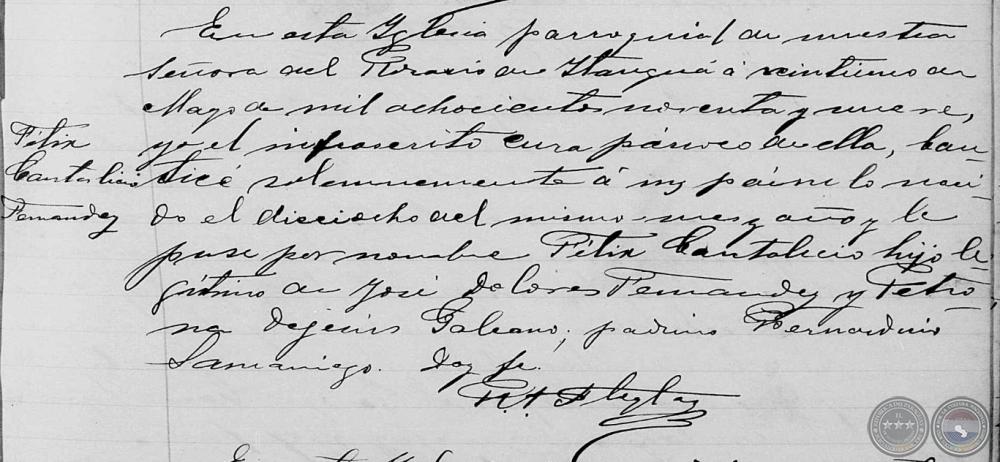 En esta Yglesia parroquial de nuestra
Señora del Rosario de Itauguá á veintiuno de
Mayo de mil ochocientos noventa y nueve,
yo el infrascrito cura párroco de ella, bau-
Félix
Cantalicio
Fernandez
ticé solemnemente á un párvulo naci-
do el dieciocho del mismo mes y año y le
puse por nombre Félix Cantalicio hijo le-
gítimo de José Dolores Fernandez, y Petro-
na Dejesús Galeano; padrino Bernardino
Samaniego. Doy fe.